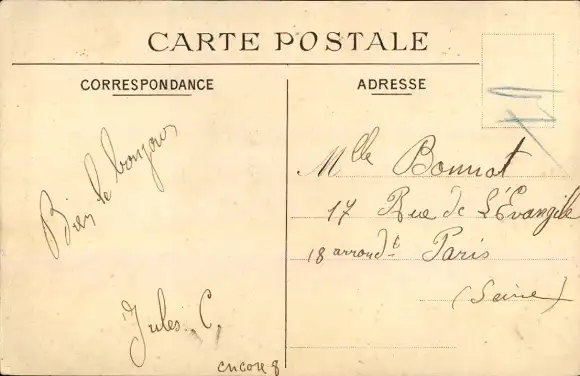 CARTE POSTALE
CORRESPONDANCE
ADRESSE
Bien le bonjour
Jules. C.
encore 8
Mlle Bonnat
17 Rue de L'Évangile
18 arrondt Paris
(Seine)